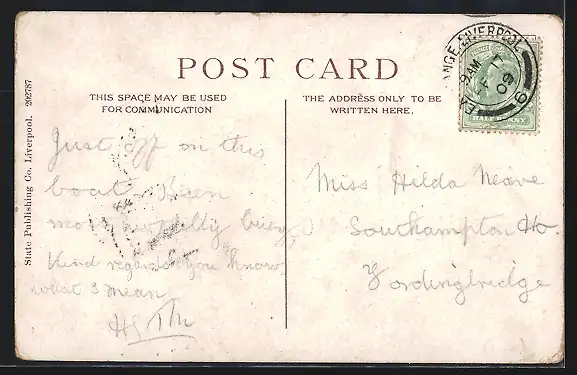 POST CARD
THIS SPACE MAY BE USED
FOR COMMUNICATION
THE ADDRESS ONLY TO BE
WRITTEN HERE.
EXCHANGE LIVERPOOL
9 AM
AP 17
09
9
HALFPENNY
State Publishing Co. Liverpool. 292787
Just off on this
boat. Been
most busy,
Kind regards you know
what I mean
Miss Hilda Neave
Southampton Ho.
Fordingbridge